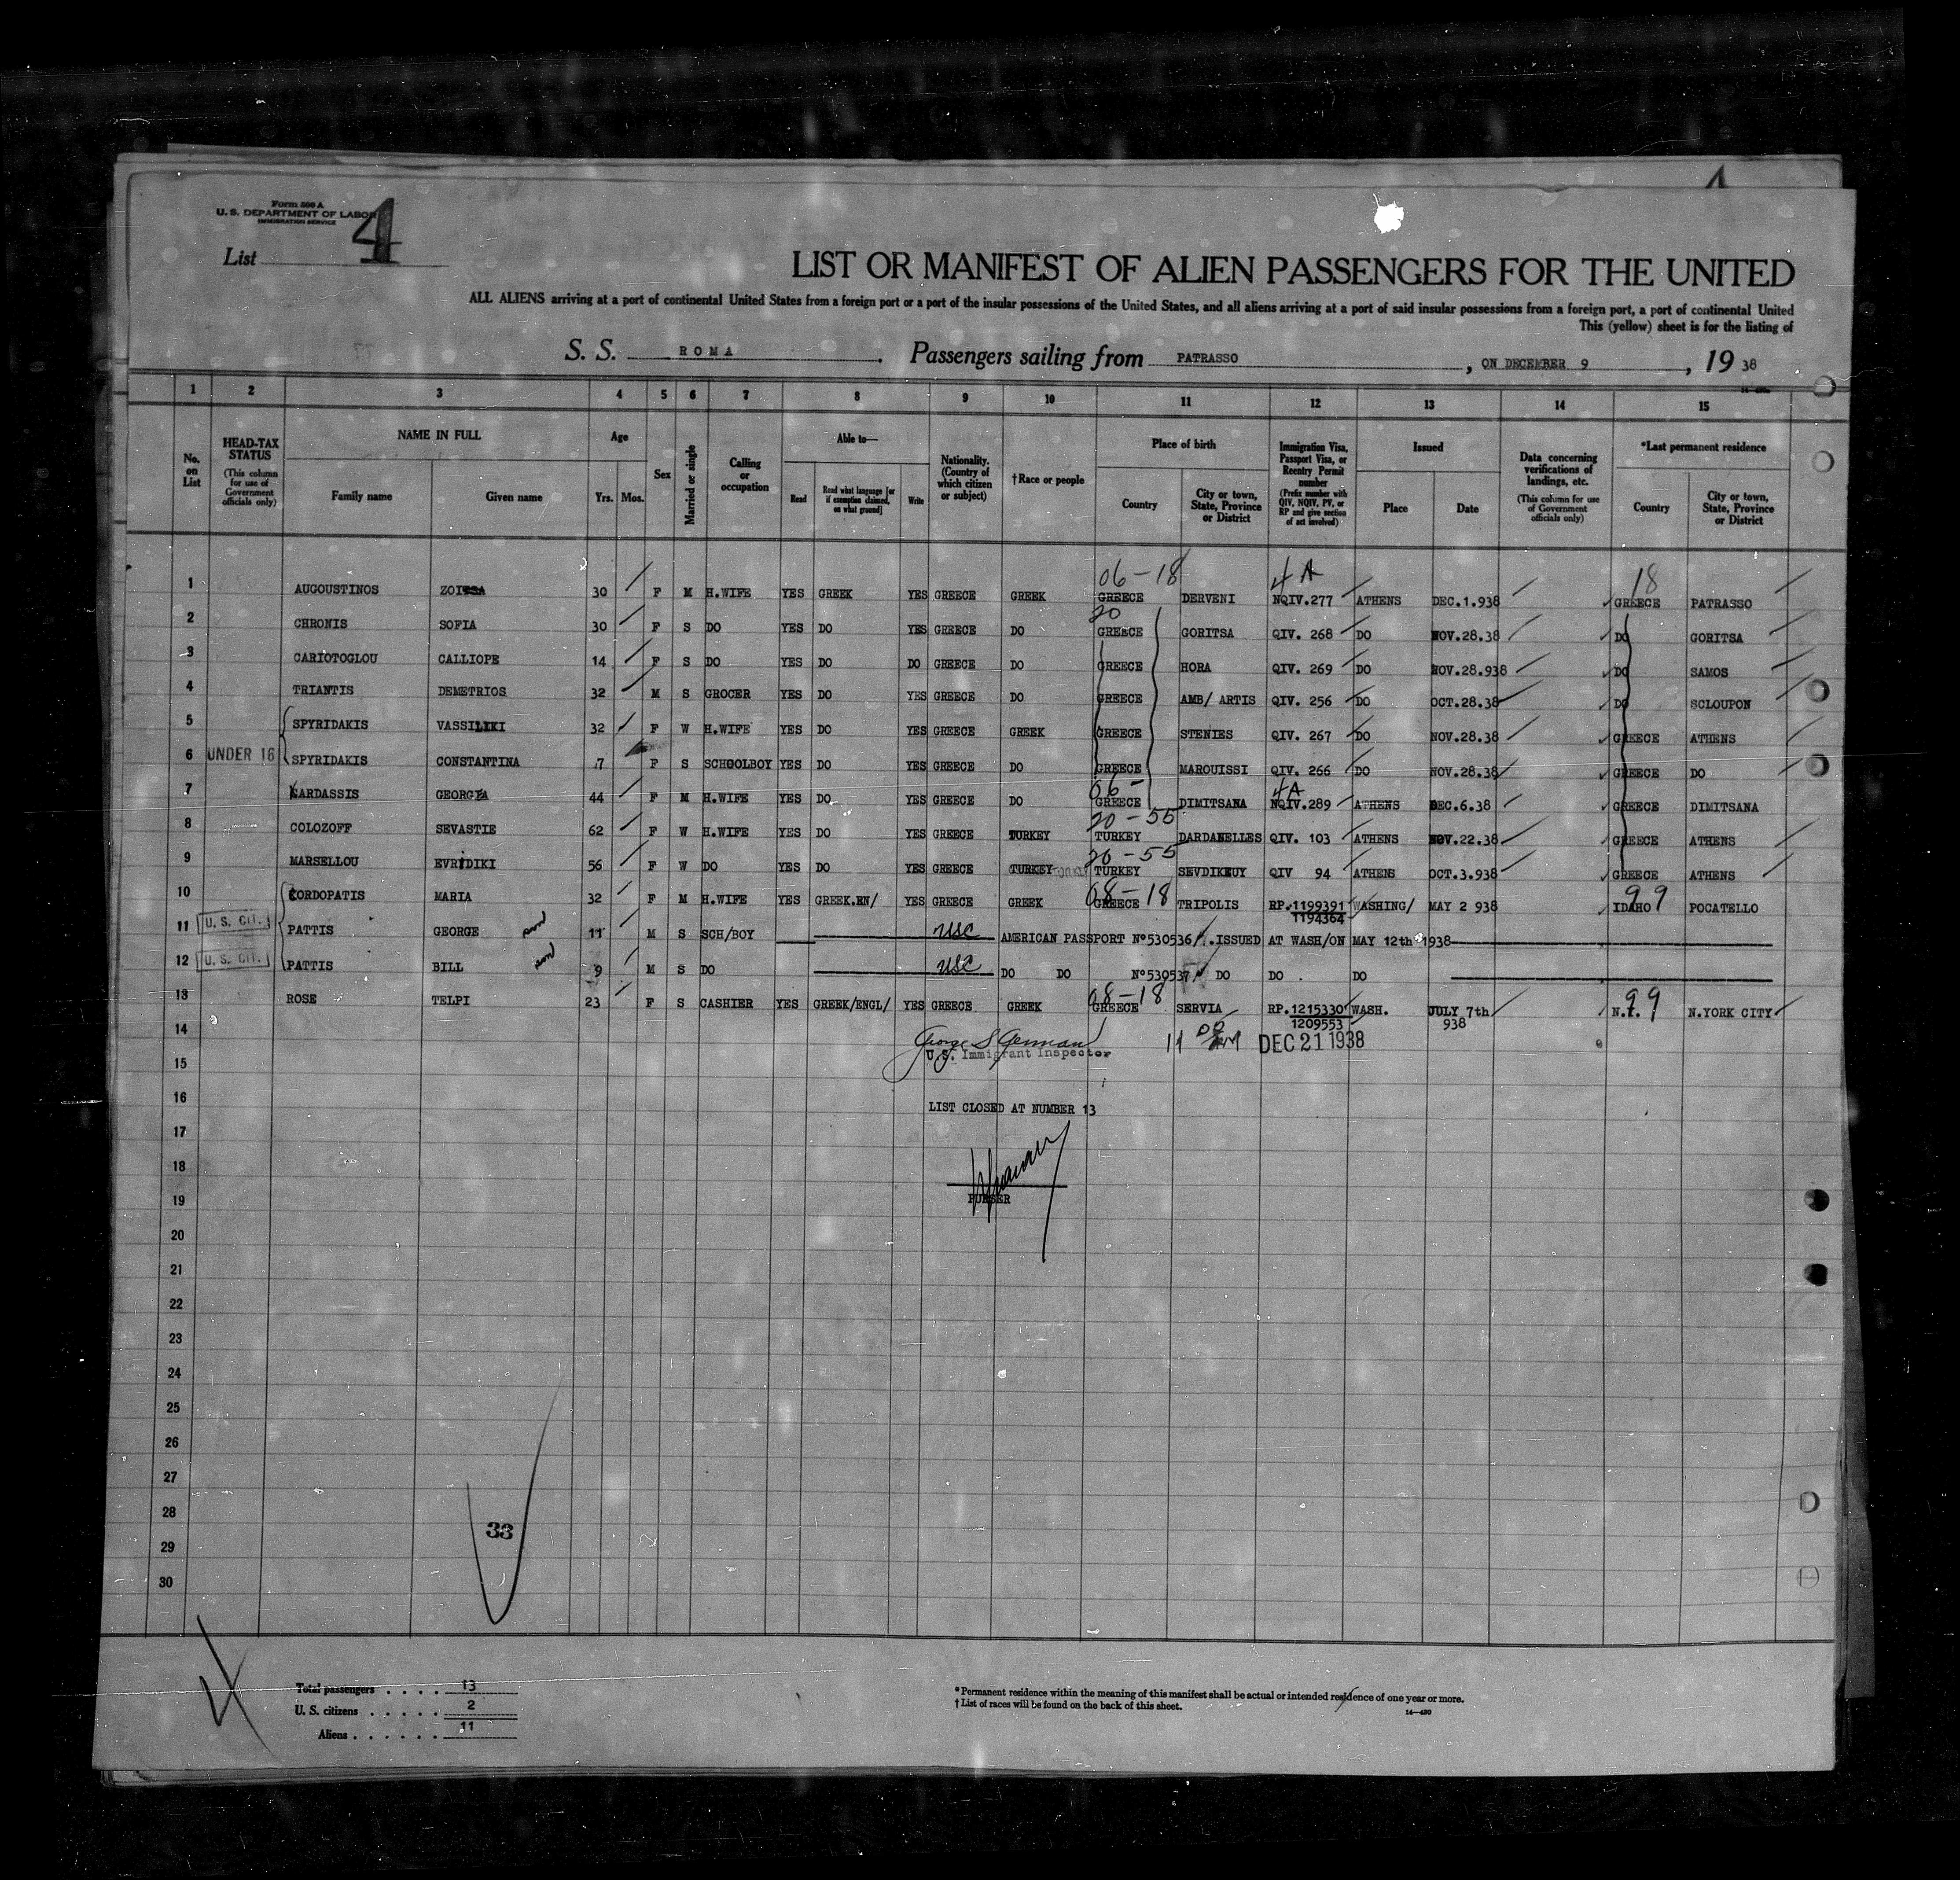 Form 500 A
U. S. DEPARTMENT OF LABOR
IMMIGRATION SERVICE
List 4
LIST OR MANIFEST OF ALIEN PASSENGERS FOR THE UNITED
ALL ALIENS arriving at a port of continental United States from a foreign port or a port of the insular possessions of the United States, and all aliens arriving at a port of said insular possessions from a foreign port, a port of continental United
This (yellow) sheet is for the listing of
S. S. ROMA. Passengers sailing from PATRASSO, ON DECEMBER 9, 19 38
1 2 3 4 5 6 7 8 9 10 11 12 13 14 15
No. on List
HEAD-TAX STATUS (This column for use of Government officials only)
NAME IN FULL Family name Given name
Age Yrs. Mos.
Sex
Married or single
Calling or occupation
Able to— Read Read what language [or if exemption claimed, on what ground] Write
Nationality. (Country of which citizen or subject)
†Race or people
Place of birth Country City or town, State, Province or District
Immigration Visa, Passport Visa, or Reentry Permit number (Prefix number with QIV, NQIV, PV, or RP and give section of act involved)
Issued Place Date
Data concerning verifications of landings, etc. (This column for use of Government officials only)
*Last permanent residence Country City or town, State, Province or District
06-18 4A 18
1 AUGOUSTINOS 30 F M H.WIFE YES GREEK YES GREECE GREEK GREECE DERVENI NQIV.277 ATHENS DEC.1.938 GREECE PATRASSO
20
2 CHRONIS SOFIA 30 F S DO YES DO YES GREECE DO GREECE GORITSA QIV. 268 DO NOV.28.38 DO GORITSA
3 CARIOTOGLOU CALLIOPE 14 F S DO YES DO DO GREECE DO GREECE HORA QIV. 269 DO NOV.28.938 DO SAMOS
4 TRIANTIS DEMETRIOS 32 M S GROCER YES DO YES GREECE DO GREECE AMB/ ARTIS QIV. 256 DO OCT.28.38 DO SCLOUPON
5 SPYRIDAKIS VASSILIKI 32 F W H.WIFE YES DO YES GREECE GREEK GREECE STENIES QIV. 267 DO NOV.28.38 GREECE ATHENS
6 UNDER 16 SPYRIDAKIS CONSTANTINA 7 F S SCHOOLBOY YES DO YES GREECE DO GREECE MAROUISSI QIV. 266 DO NOV.28.38 GREECE DO
06- 4A
7 KARDASSIS GEORGIA 44 F M H.WIFE YES DO YES GREECE DO GREECE DIMITSANA NQIV.289 ATHENS DEC.6.38 GREECE DIMITSANA
20-55
8 COLOZOFF SEVASTIE 62 F W H.WIFE YES DO YES GREECE TURKEY TURKEY DARDANELLES QIV. 103 ATHENS NOV.22.38 GREECE ATHENS
20-55
9 MARSELLOU EVRIDIKI 56 F W DO YES DO YES GREECE TURKEY TURKEY SEVDIKEUY QIV 94 ATHENS OCT.3.938 GREECE ATHENS
08-18 99
10 CORDOPATIS MARIA 32 F M H.WIFE YES GREEK.EN/ YES GREECE GREEK GREECE TRIPOLIS RP.1199391 WASHING/ MAY 2 938 IDAHO POCATELLO
1194364
11 U. S. CIT. PATTIS GEORGE 11 M S SCH/BOY USC AMERICAN PASSPORT Nº530536/.ISSUED AT WASH/ON MAY 12th 1938
12 U. S. CIT. PATTIS BILL 9 M S DO USC DO DO Nº530537 DO DO DO
08-18 99
13 ROSE TELPI 23 F S CASHIER YES GREEK/ENGL/ YES GREECE GREEK GREECE SERVIA RP.1215330 WASH. JULY 7th N.Y. N.YORK CITY
1209553 938
14 George S German 11 AM DEC 21 1938
U.S. Immigrant Inspector
15
16 LIST CLOSED AT NUMBER 13
17
18
19 PURSER
20
21
22
23
24
25
26
27
28
33
29
30
Total passengers . . . . 13
U. S. citizens . . . . . 2
Aliens . . . . . . 11
* Permanent residence within the meaning of this manifest shall be actual or intended residence of one year or more.
† List of races will be found on the back of this sheet.
14—430